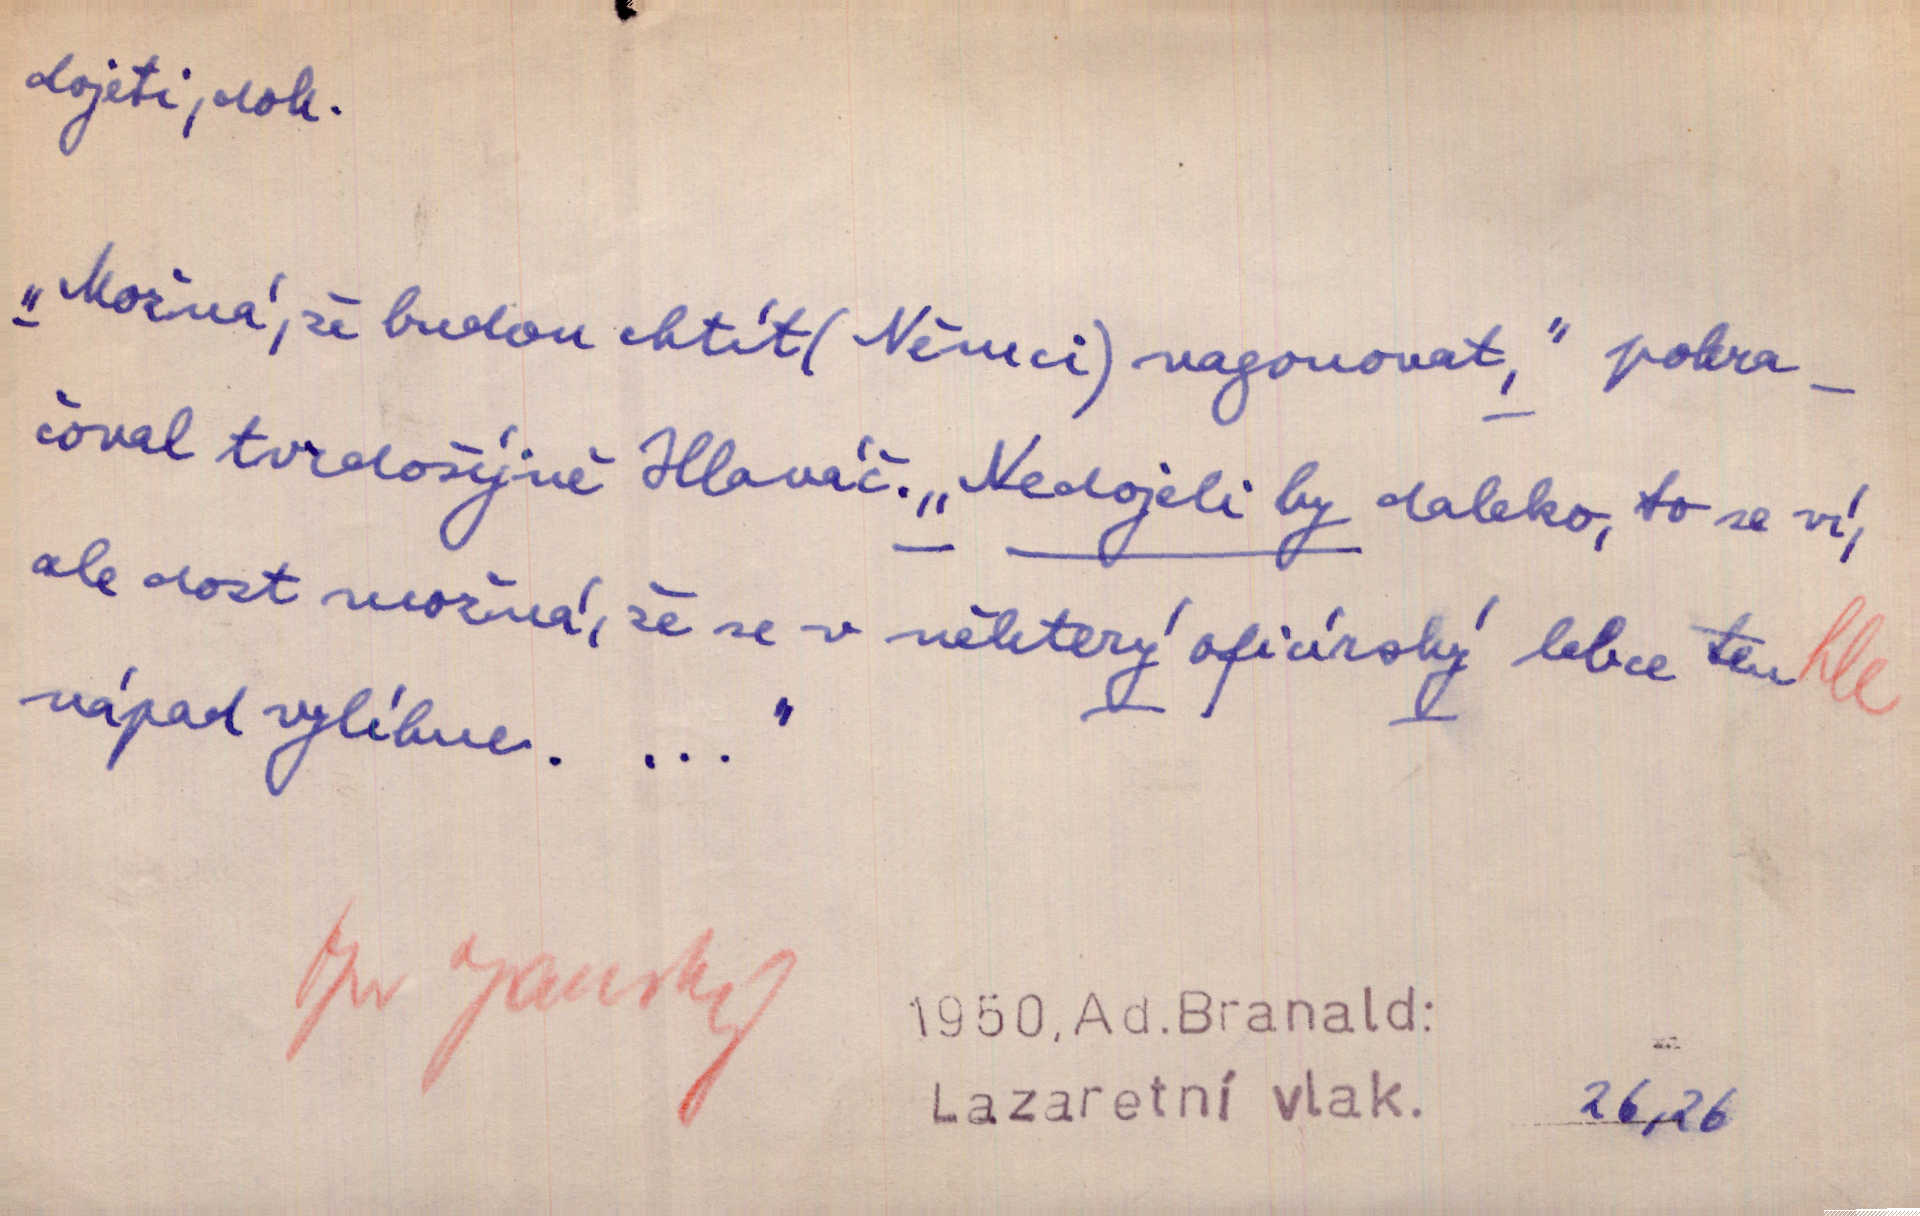 dojeti, dok.
„Možná, že budou chtít (Němci) vagonovat,“ pokra-
čoval tvrdošíjně Hlaváč. „Nedojeli by daleko, to se ví,
ale dost možná, že se v některý oficírský lebce tenhle
nápad vylíhne. ...“
Janský
1950, Ad. Branald:
Lazaretní vlak.
26,26